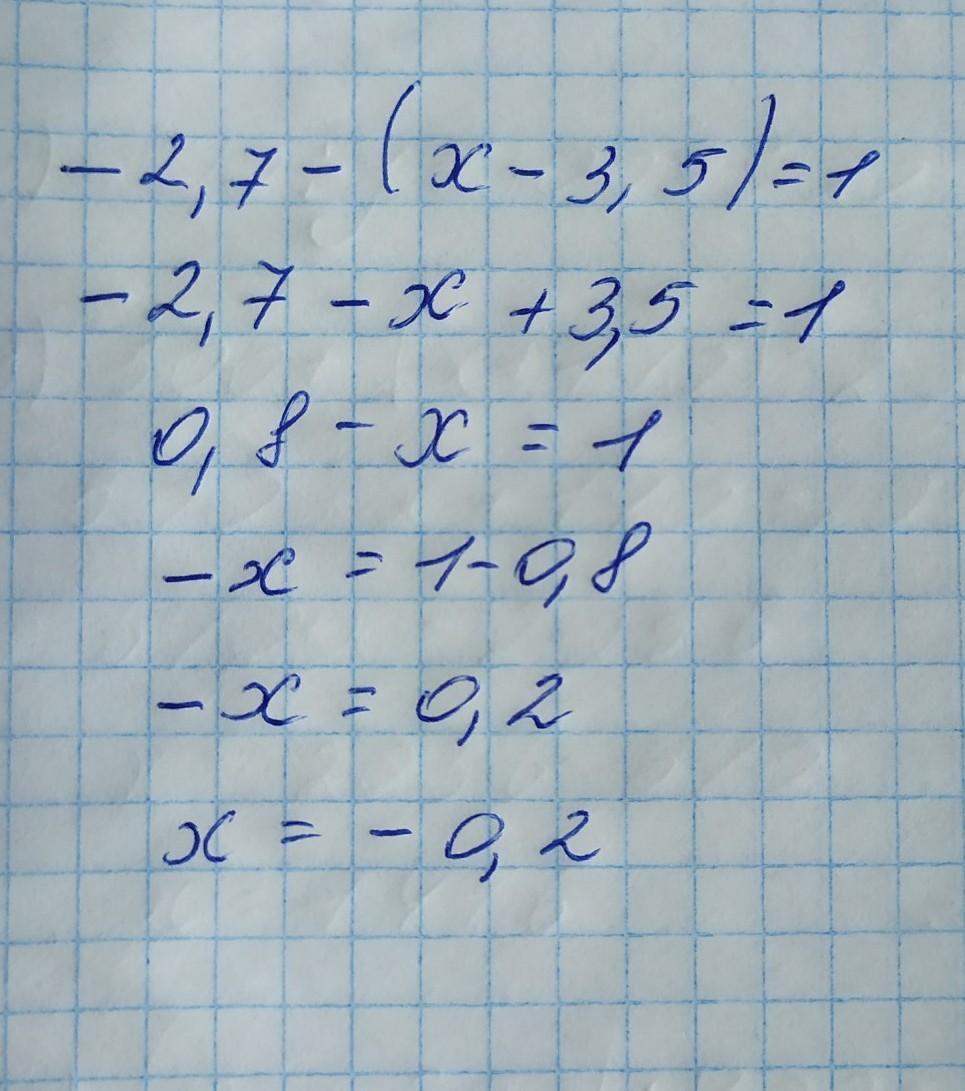 -2,7-(x-3,5)=1
-2,7-x+3,5=1
0,8-x=1
-x=1-0,8
-x=0,2
x=-0,2